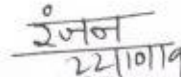 रंजन
22/10/19